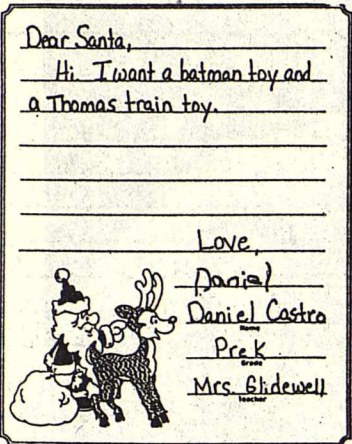 Dear Santa,
Hi. I want a batman toy and
a Thomas train toy.
Love,
Daniel
Daniel Castro
Name
Pre K
Grade
Mrs. Glidewell
teacher